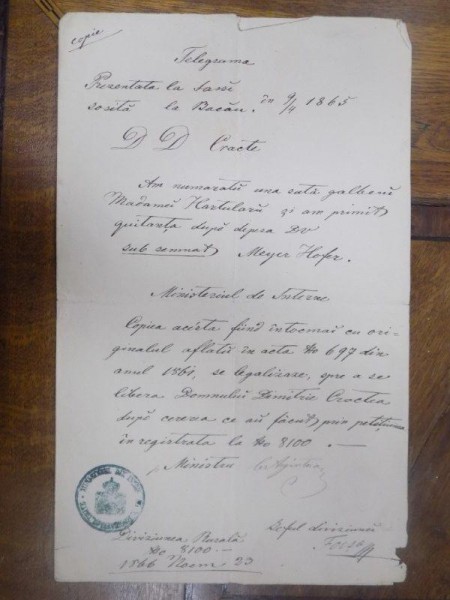 copie
Telegrama
Prezentata la Iassi
sosită la Bacău. în 9/4 1865
D D Cracte
Am numaratŭ una sută galbenĭ
Madameĭ Hartulară și am primit
quitanța după depeșa Dv
sub semnat Meyer Hofer.
Ministeriul de Interne
Copiea acésta fiind întocmai cu ori-
ginalul aflatŭ în acta No 697 din
anul 1861, se legalizase, spre a se
libera Domnului Dimitrie Cractea
după cererea ce au făcut prin petițiunea
înregistrata la No 8100. —
p Ministru
Diviziunea Rurală
No 8100 —
1866 Noem 23
Șeful diviziunii